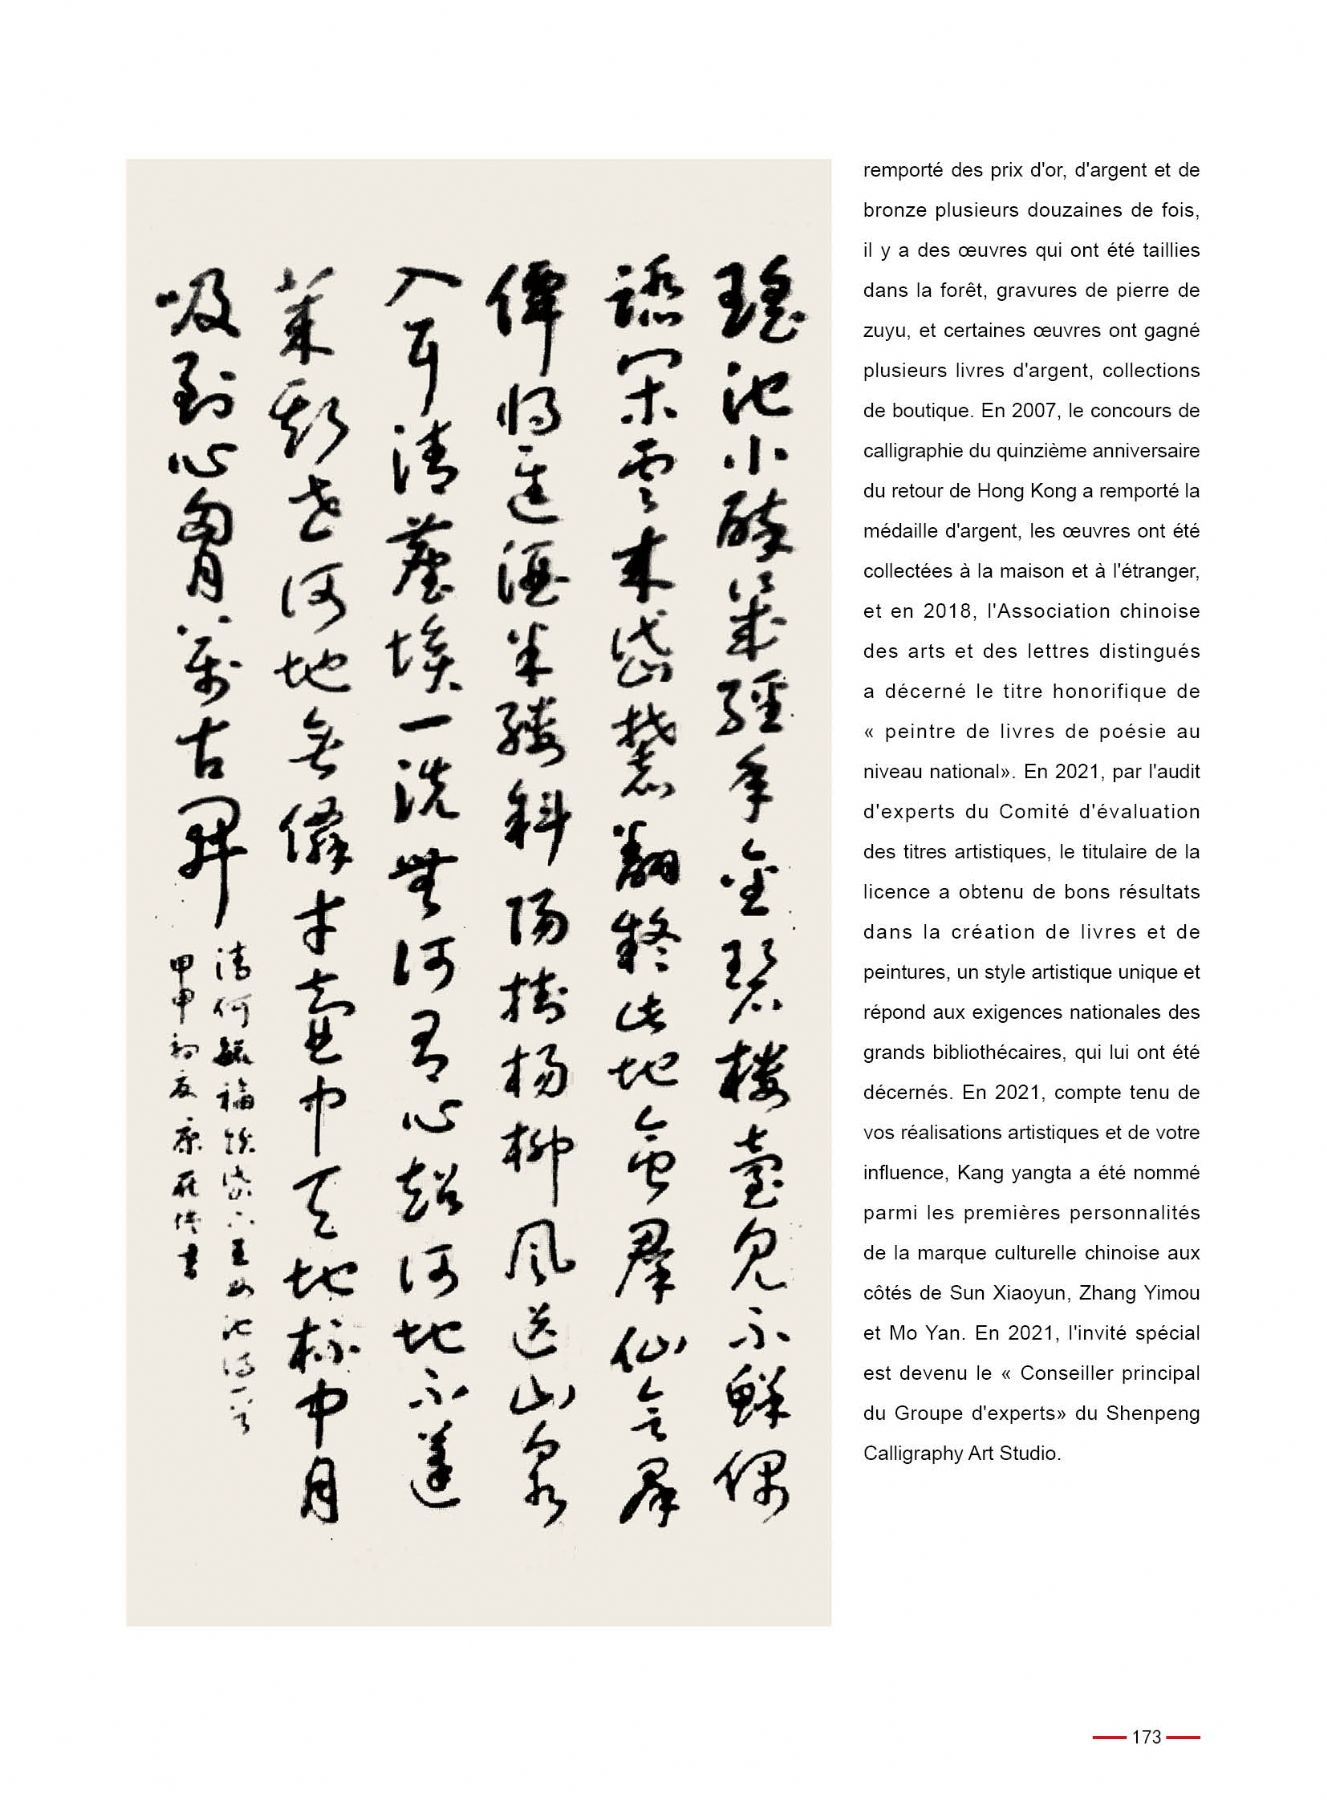 瑤池小醉幾經年金碧樓臺見不鮮偶
閑雲來岱麓翻疑此地會羣仙會羣
僊將進酒半縷斜陽樹楊柳風送山泉
入耳清塵埃一洗無何有心超何地不蓬
萊 世何地無 才壺中天地杯中月
吸到心胸萬古開
清何毓福 岱下王母池詩一首
甲申初夏康 書
remporté des prix d'or, d'argent et de
bronze plusieurs douzaines de fois,
il y a des œuvres qui ont été taillies
dans la forêt, gravures de pierre de
zuyu, et certaines œuvres ont gagné
plusieurs livres d'argent, collections
de boutique. En 2007, le concours de
calligraphie du quinzième anniversaire
du retour de Hong Kong a remporté la
médaille d'argent, les œuvres ont été
collectées à la maison et à l'étranger,
et en 2018, l'Association chinoise
des arts et des lettres distingués
a décerné le titre honorifique de
« peintre de livres de poésie au
niveau national». En 2021, par l'audit
d'experts du Comité d'évaluation
des titres artistiques, le titulaire de la
licence a obtenu de bons résultats
dans la création de livres et de
peintures, un style artistique unique et
répond aux exigences nationales des
grands bibliothécaires, qui lui ont été
décernés. En 2021, compte tenu de
vos réalisations artistiques et de votre
influence, Kang yangta a été nommé
parmi les premières personnalités
de la marque culturelle chinoise aux
côtés de Sun Xiaoyun, Zhang Yimou
et Mo Yan. En 2021, l'invité spécial
est devenu le « Conseiller principal
du Groupe d'experts» du Shenpeng
Calligraphy Art Studio.
173